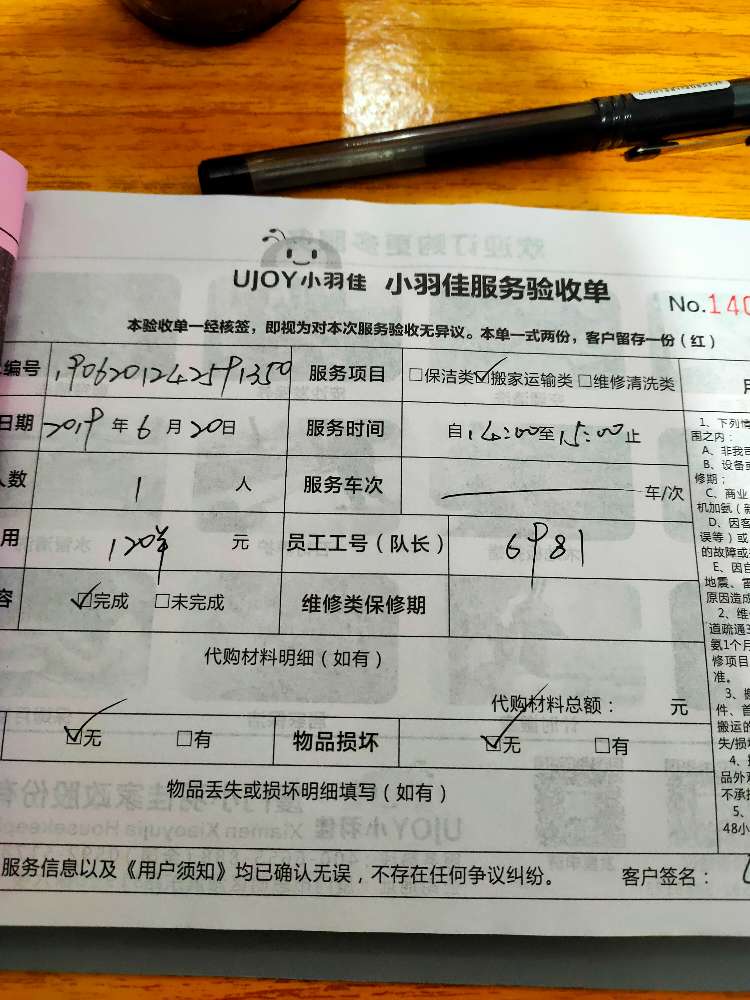 UJOY小羽佳 小羽佳服务验收单
No.140
本验收单一经核签，即视为对本次服务验收无异议。本单一式两份，客户留存一份（红）
编号 1906201242591350 服务项目 □保洁类☑搬家运输类□维修清洗类
日期 2019年6月20日 服务时间 自14:00至15:00止
人数 1人 服务车次 车/次
用 120 元 员工工号（队长） 6981
容 ☑完成 □未完成 维修类保修期
代购材料明细（如有）
代购材料总额： 元
☑无 □有 物品损坏 ☑无 □有
物品丢失或损坏明细填写（如有）
服务信息以及《用户须知》均已确认无误，不存在任何争议纠纷。 客户签名：
用
1、下列情
围之内：
A、非我司
B、设备或
修期；
C、商业
机加氨（新
D、因客
误等）或
的故障或
E、因自
地震、雷
原因造成
2、维
道疏通3
氨1个月
修项目
准。
3、搬
件、首
搬运的
失/损坏
4、
品外观
不承担
5、
48小